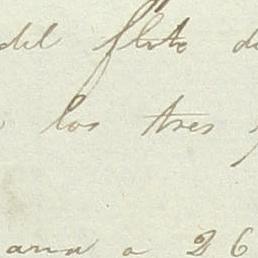 del flete d
los tres
ana a 26